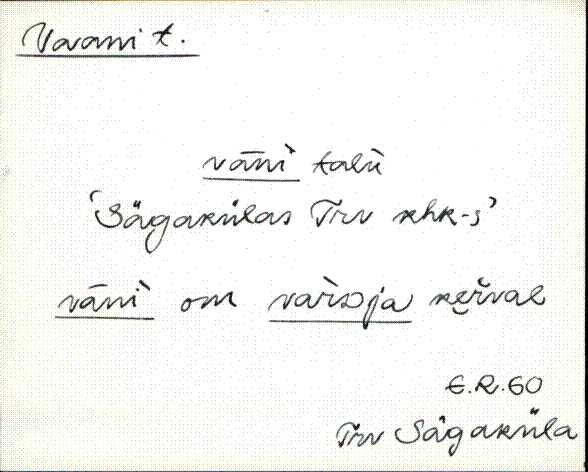 Vaani t.
vānì̬ talu
'Sägakülas Trv khk-s'
vānì̬ om varoja keŕval
E.R. 60
Trv Sägaküla